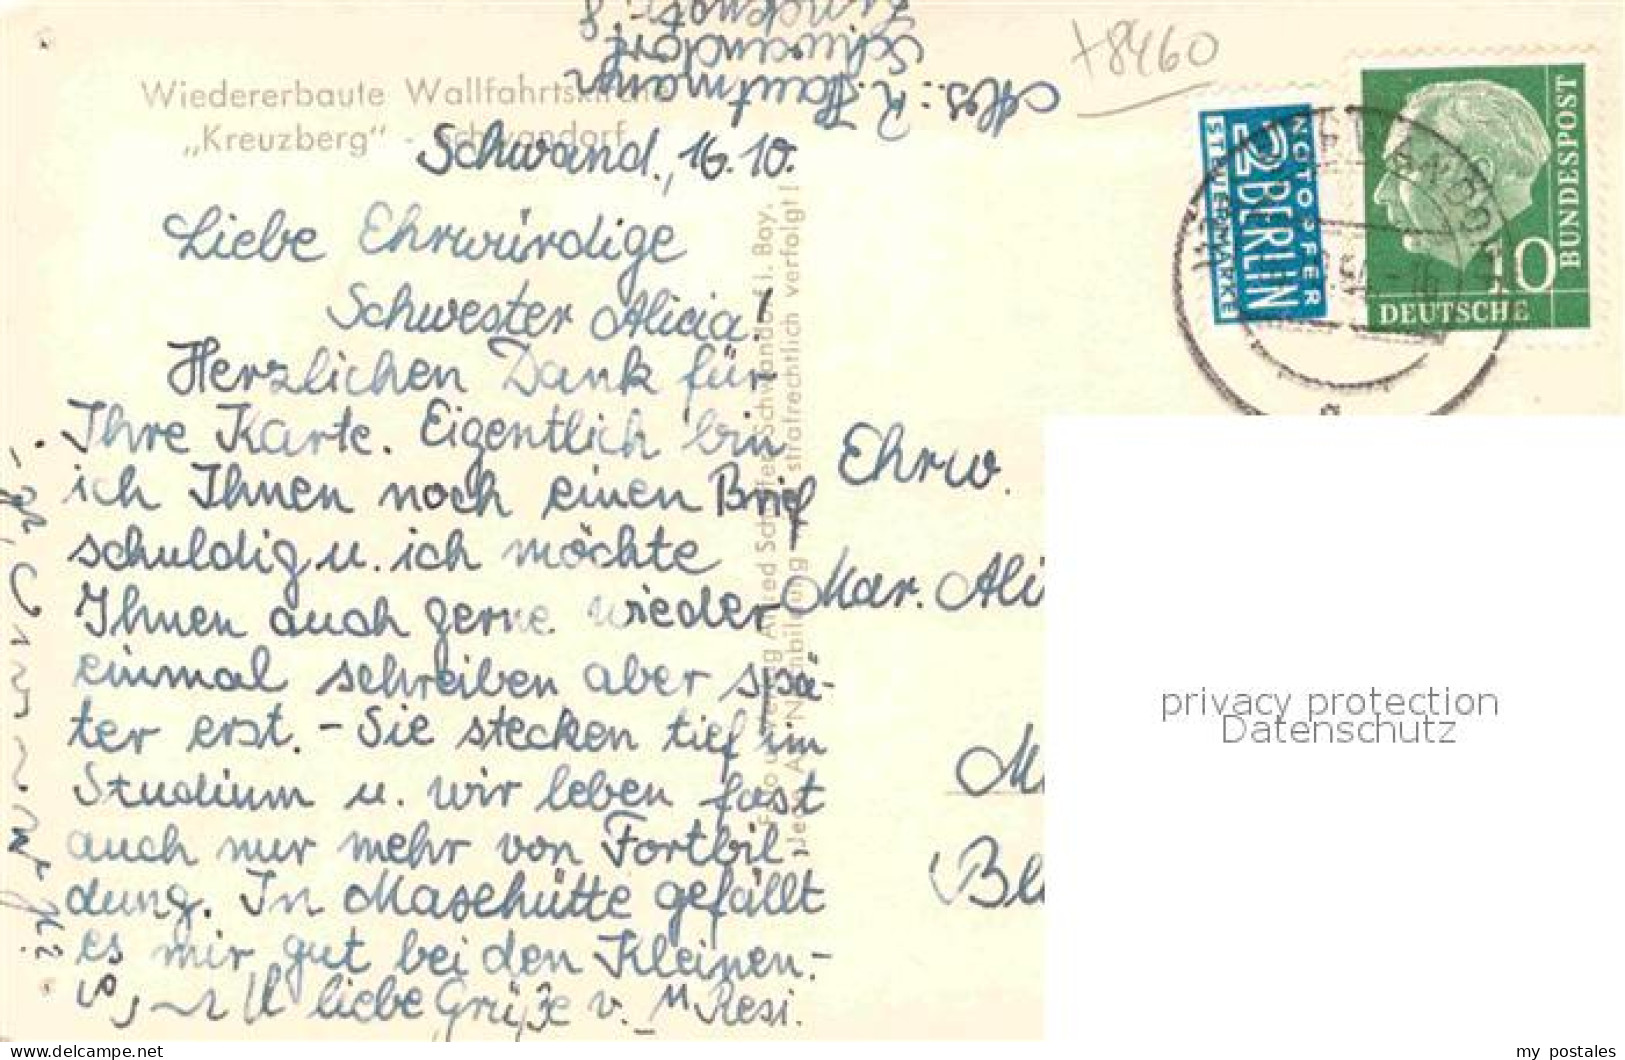 Wiedererbaute Wallfahrtskirche
„Kreuzberg" - Schwandorf
Abs.: R. Hautmann
Schwandorf
+8460
Schwand., 16.10.
Liebe Ehrwürdige
Schwester Alicia!
Herzlichen Dank für
Ihre Karte. Eigentlich bin
ich Ihnen noch einen Brief
schuldig u. ich möchte
Ihnen auch gerne wieder
einmal schreiben aber spä-
ter erst. - Sie stecken tief im
Studium u. wir leben fast
auch nur mehr von Fortbil-
dung. In Maxhütte gefällt
es mir gut bei den Kleinen.-
liebe Grüße v. Resi.
Foto u. Verlag Alfred Schaffer, Schwandorf i. Bay.
Jede Art Nachbildung wird strafrechtlich verfolgt!
NOTOPFER
2 BERLIN
STEUERMARKE
10
DEUTSCHE
BUNDESPOST
Ehrw.
Mar. Ali
M
Bl
privacy protection
Datenschutz
my postales
Your own personal museum www.delcampe.net